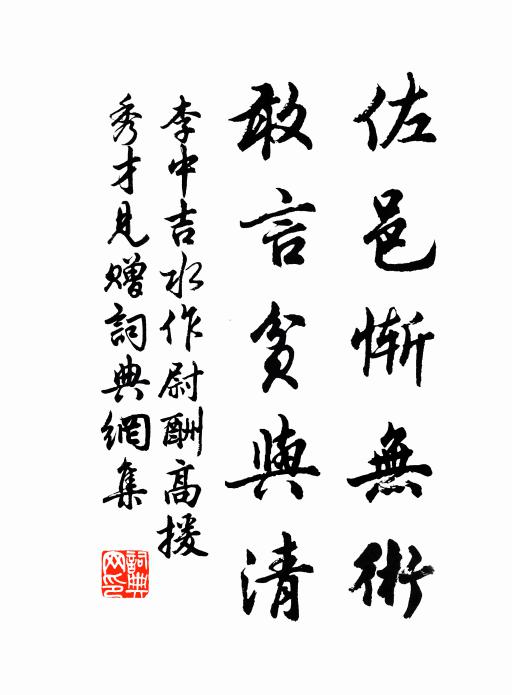 佐邑慚無術
敢言貧與清
李中吉水作尉酬高援
秀才見贈詞典網集
詞典
网印